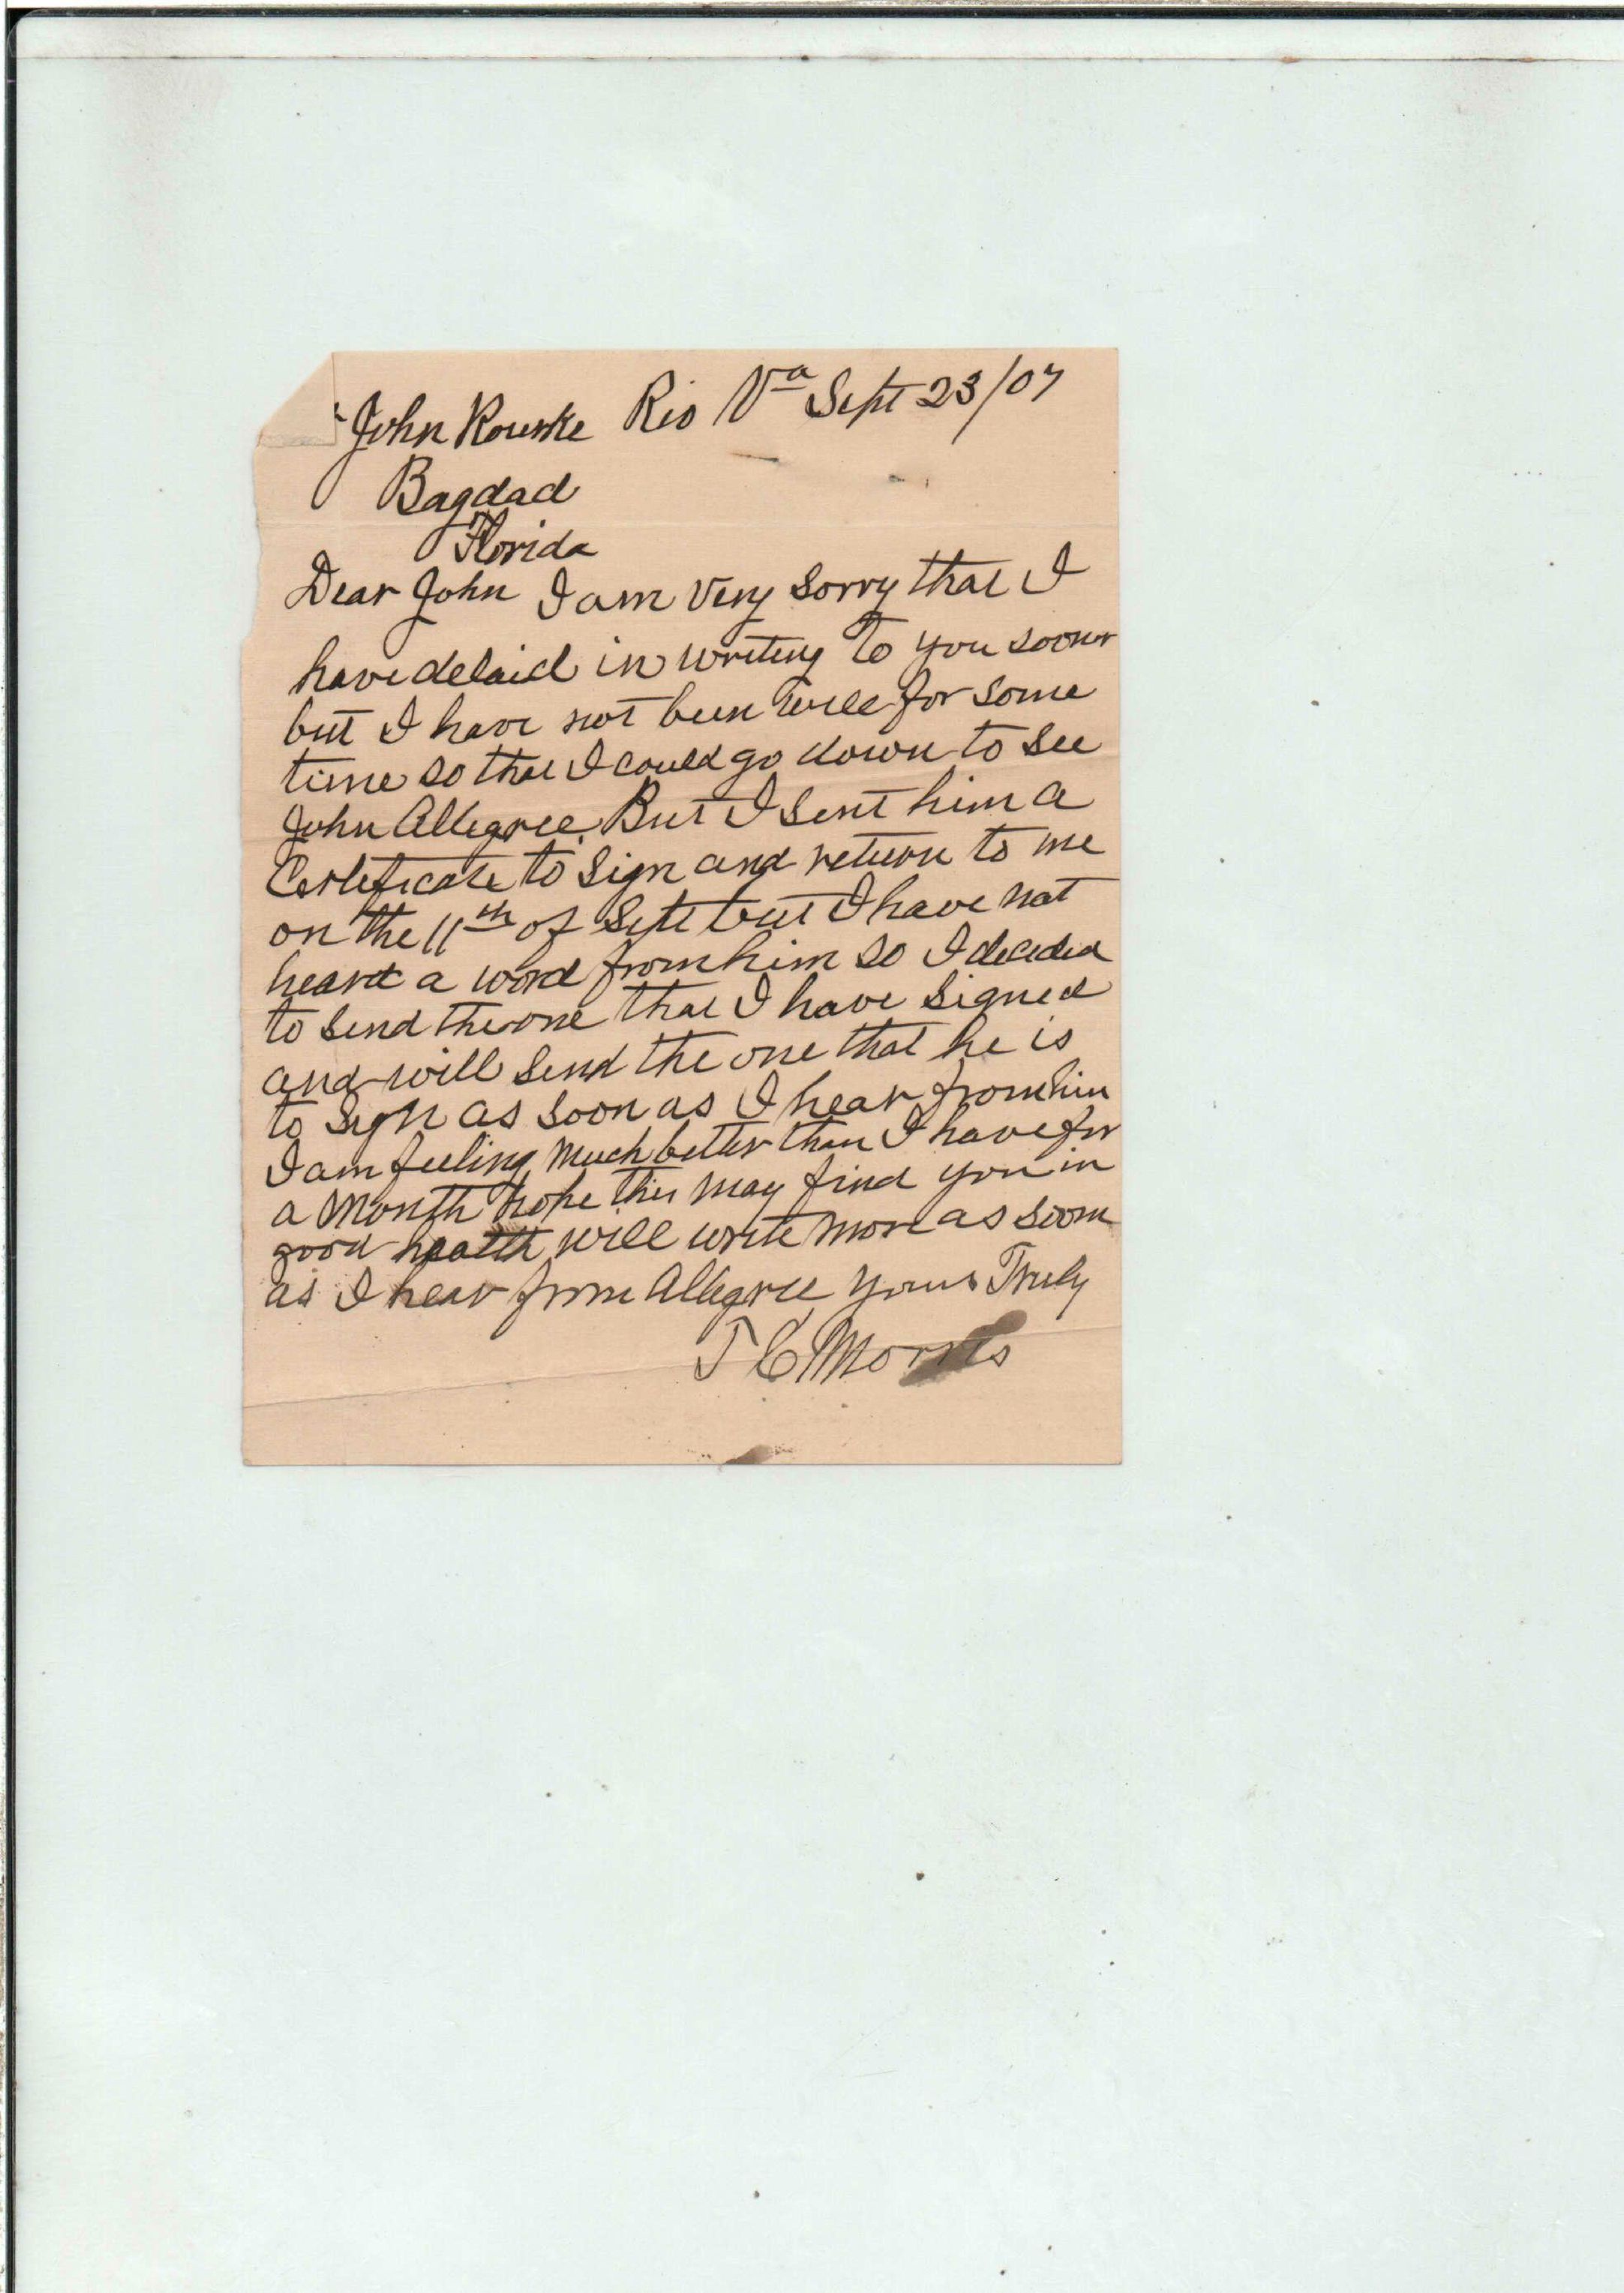 John Rourke Rio Va Sept 23/07
Bagdad
Florida
Dear John I am very sorry that I
have delaid in writing to you sooner
but I have not been well for some
time so that I could go down to see
John Allegree. But I sent him a
Certificate to sign and return to me
on the 11th of Sept but I have not
heard a word from him so I decided
to send the one that I have signed
and will send the one that he is
to sign as soon as I hear from him
I am feeling much better than I have for
a month hope this may find you in
good health will write more as soon
as I hear from Allegree yours Truly
J C Morris